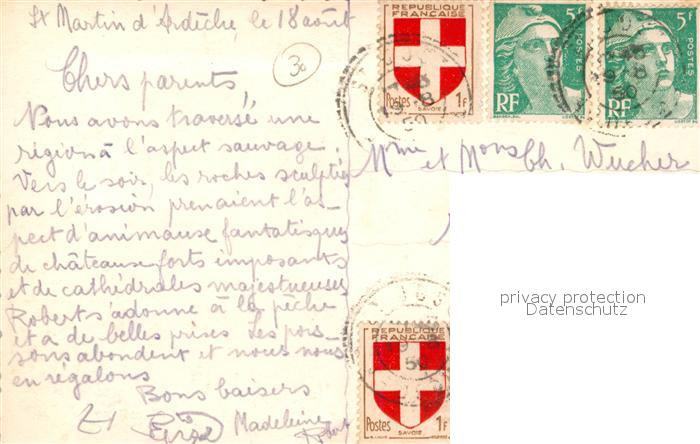 St Martin d'Ardèche, le 18 août
30
Chers parents,
Nous avons traversé une
région à l'aspect sauvage.
Vers le soir, les roches sculptées
par l'érosion prenaient l'as-
pect d'animaux fantastiques
de châteaux forts imposants
et de cathédrales majestueuses
Robert s'adonne à la pêche
et a de belles prises. Les pois-
sons abondent et nous nous
en régalons
Bons baisers
Madeleine
Robert
REPUBLIQUE
FRANÇAISE
Postes 1F
SAVOIE
5F
POSTES
RF
5F
POSTES
RF
Mme et Mons Ch. Wucher
privacy protection
Datenschutz
REPUBLIQUE
FRANÇAISE
Postes 1F
SAVOIE